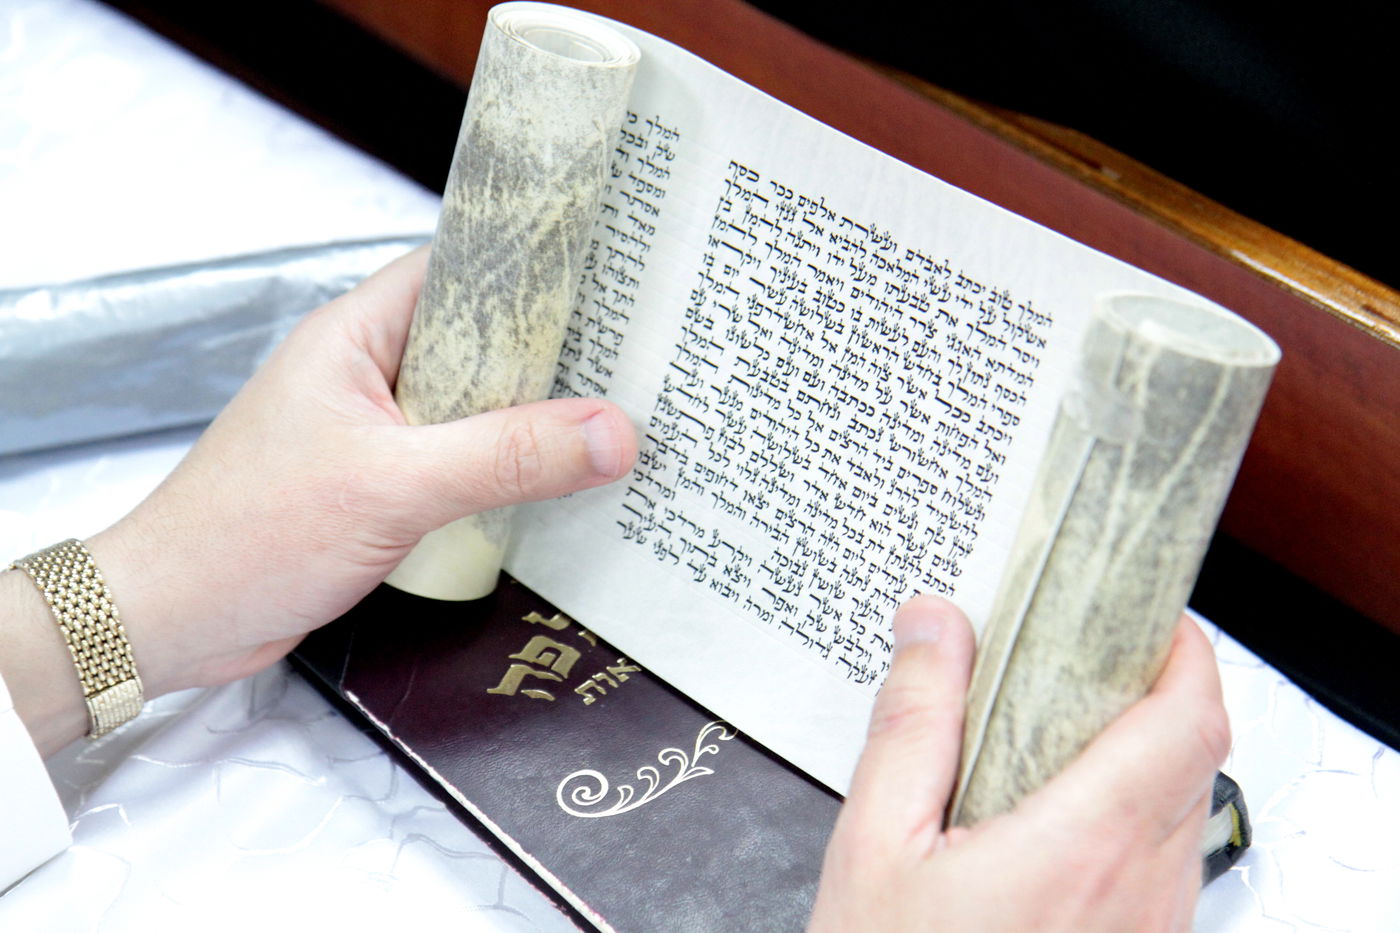 המלך טוב יכתב לאבדם ועשרת אלפים ככר כסף
אשקול על ידי עשי המלאכה להביא אל גנזי המלך
ויסר המלך את טבעתו מעל ידו ויתנה להמן בן
המדתא האגגי צרר היהודים ויאמר המלך להמן
הכסף נתון לך והעם לעשות בו כטוב בעיניך ויקראו
ספרי המלך בחדש הראשון בשלושה עשר יום בו
ויכתב ככל אשר צוה המן אל אחשדרפני המלך
ואל הפחות אשר על מדינה ומדינה ואל שרי עם
ועם מדינה ומדינה ככתבה ועם ועם כלשונו בשם
המלך אחשורש נכתב ונחתם בטבעת המלך
ונשלוח ספרים ביד הרצים אל כל מדינות המלך
להשמיד להרג ולאבד את כל היהודים מנער ועד
זקן טף ונשים ביום אחד בשלושה עשר לחדש
שנים עשר הוא חדש אדר ושללם לבוז פתשגן
הכתב להנתן דת בכל מדינה ומדינה גלוי לכל העמים
עתדים ליום הזה הרצים יצאו דחופים בדבר
והדת נתנה בשושן הבירה והמלך והמן ישבו
והעיר שושן נבוכה ומרדכי
את כל אשר נעשה ויקרע מרדכי את
וילבש שק ואפר ויצא בתוך העיר
זעקה גדולה ומרה ויבוא עד לפני שער
המלך כי
שק ובכל
המלך
ומספד
אסתר
מאד
ולהסיר
להתך
ותצוהו
התך אל
המלך
פרשת
המלך
אשר
אסתר